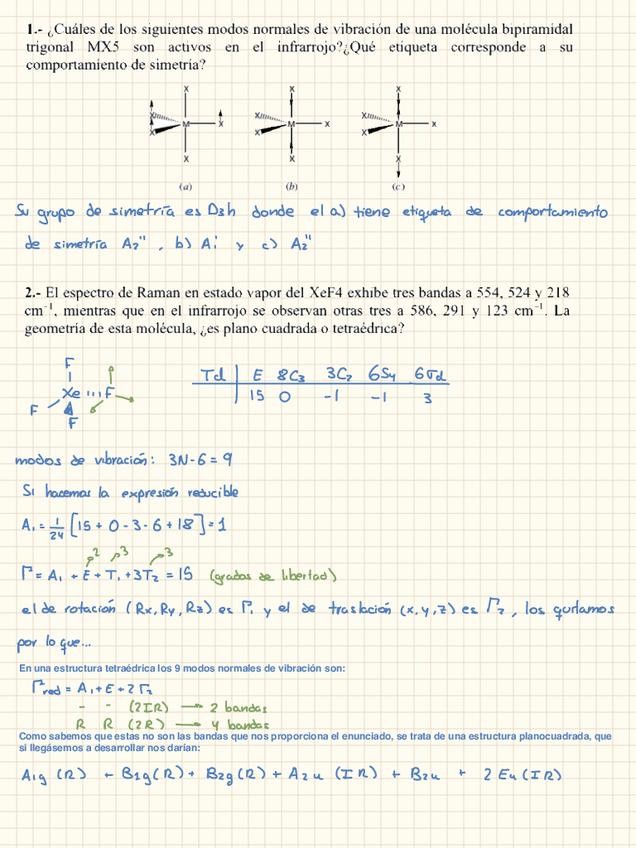 1.- ¿Cuáles de los siguientes modos normales de vibración de una molécula bipiramidal
trigonal MX5 son activos en el infrarrojo?¿Qué etiqueta corresponde a su
comportamiento de simetría?
X X X
X M X X M X X M X
X X X
X X X
(a) (b) (c)
Su grupo de simetría es D3h donde el a) tiene etiqueta de comportamiento
de simetría A2'' , b) A1' y c) A2''
2.- El espectro de Raman en estado vapor del XeF4 exhibe tres bandas a 554, 524 y 218
cm⁻¹, mientras que en el infrarrojo se observan otras tres a 586, 291 y 123 cm⁻¹. La
geometría de esta molécula, ¿es plano cuadrada o tetraédrica?
F
Xe F
F
F
Td E 8C3 3C2 6S4 6σd
15 0 -1 -1 3
modos de vibración: 3N-6 = 9
Si hacemos la expresión reducible
A1 = 1/24 [15 + 0 - 3 - 6 + 18] = 1
Γ = A1 + E + T1 + 3T2 = 15 (grados de libertad)
el de rotación (Rx, Ry, Rz) es Γ1 y el de traslación (x, y, z) es Γ2, los quitamos
por lo que...
En una estructura tetraédrica los 9 modos normales de vibración son:
Γred = A1 + E + 2Γ2
- - (2IR) → 2 bandas
R R (2R) → 4 bandas
Como sabemos que estas no son las bandas que nos proporciona el enunciado, se trata de una estructura planocuadrada, que
si llegásemos a desarrollar nos darían:
A1g (R) + B1g (R) + B2g (R) + A2u (IR) + B2u + 2 Eu (IR)